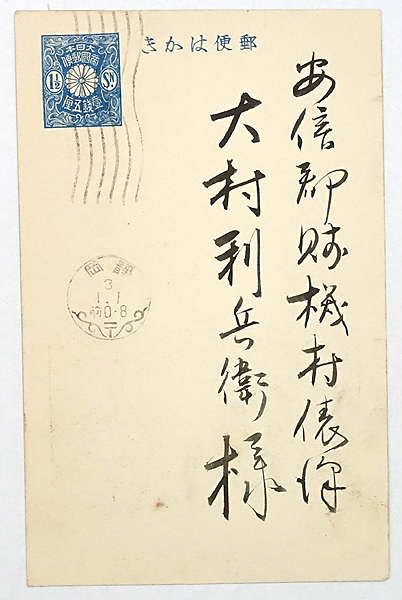 郵便はかき
大日本
帝國郵便
1½ SN
壹錢五厘
靜岡
3
1.1
前0-8
安倍郡賤機村俵澤
大村利兵衛様